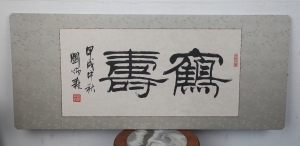 鶴壽
甲戌中秋
劉炳森